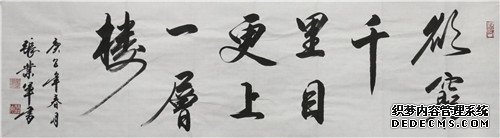 欲窮
千
里目
更上
一層
樓
庚子年春月
织梦内容管理系统
DEDECMS.COM